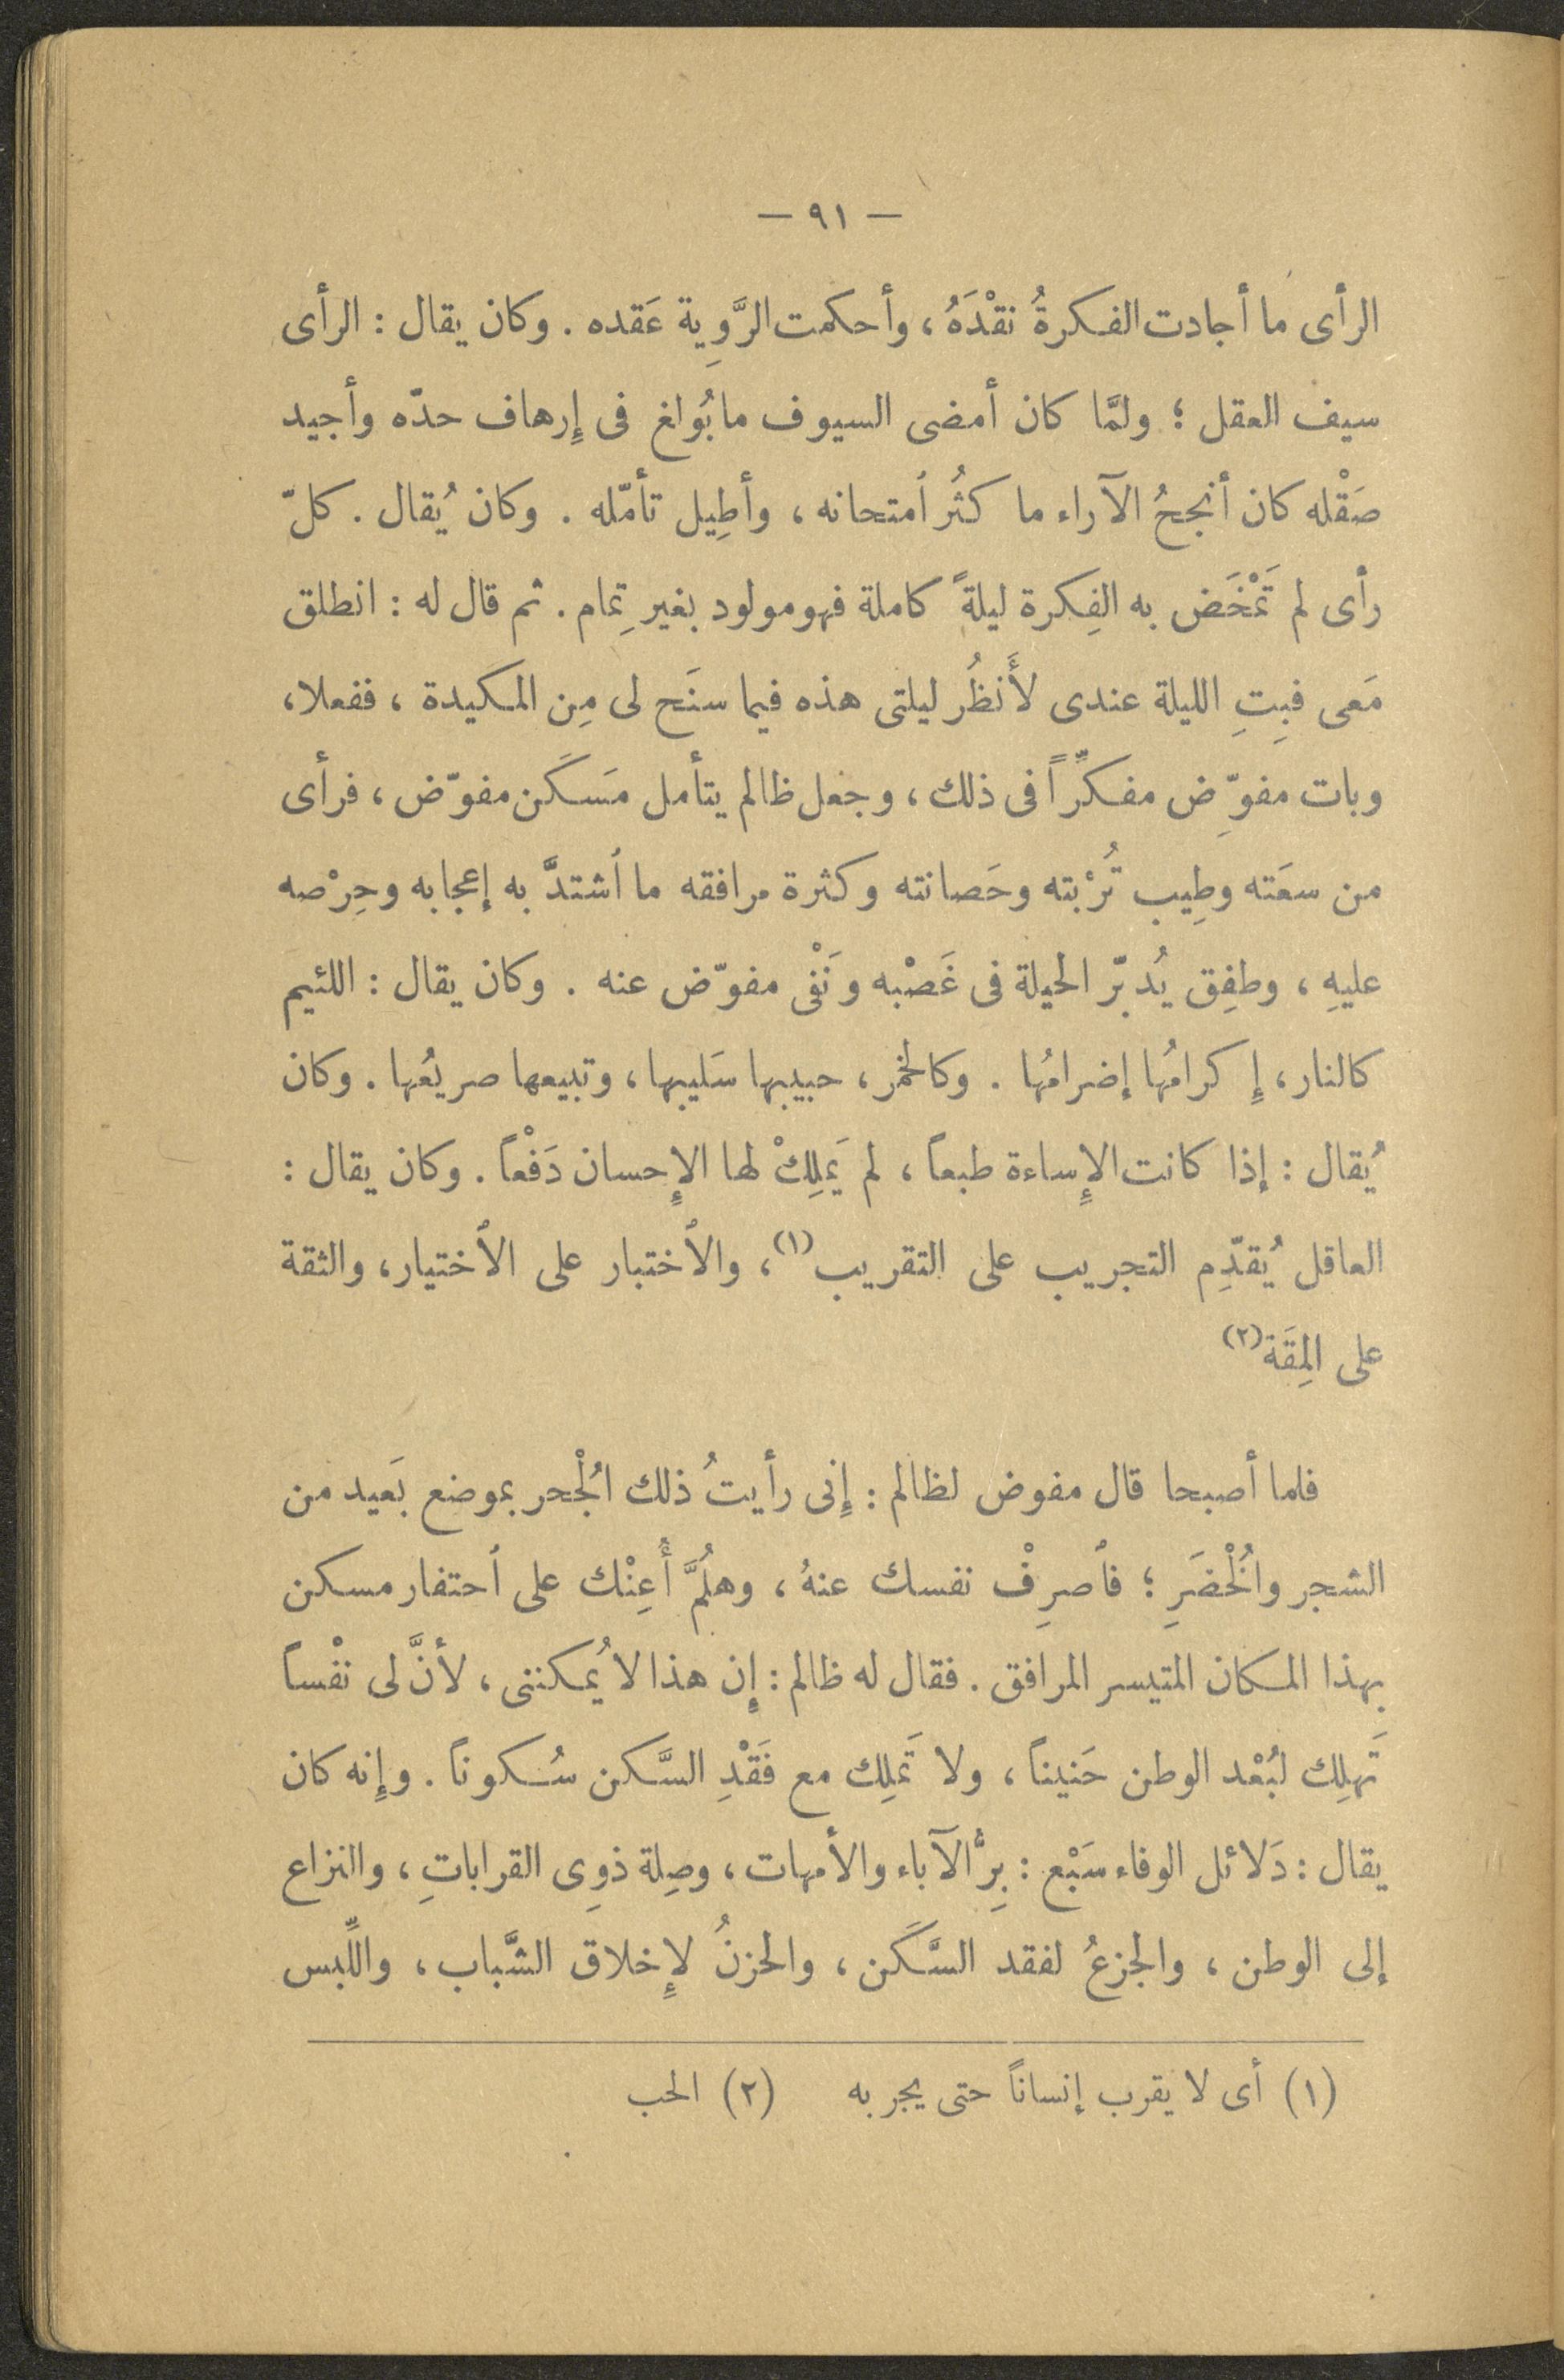 — ٩١ —
الرأى ما أجادت الفكرةُ نقْدَهُ، وأحكمت الرَّوِية عَقده. وكان يقال: الرأى
سيف العقل؛ ولمَّا كان أمضى السيوف ما بُولغ فى إِرهاف حدّه وأجيد
صَقْله كان أنجحُ الآراء ما كثُر ٱمتحانه، وأطِيل تأمّله. وكان يُقال. كلّ
رأى لم تَمْخَض به الفِكرة ليلةً كاملة فهو مولود بغير تِمام. ثم قال له: انطلق
مَعى فبِتِ الليلة عندى لأَنظُر ليلتى هذه فيما سنَح لى مِن المكيدة، ففعلا،
وبات مفوِّض مفكِّراً فى ذلك، وجعل ظالم يتأمل مَسكَن مفوّض، فرأى
من سعَته وطِيب تُرْبته وحَصانته وكثرة مرافقه ما ٱشتدَّ به إعجابه وحِرْصه
عليهِ، وطفِق يُدبّر الحيلة فى غَصْبه ونَفْى مفوّض عنه. وكان يقال: اللئيم
كالنار، إِكرامُها إضرامُها. وكالخمر، حبيبها سَليبها، وتبيعها صريعُها. وكان
يُقال: إذا كانت الإِساءة طبعاً، لم يَملِكْ لها الإِحسان دَفْعاً. وكان يقال:
العاقل يُقدّم التجريب على التقريب(١)، والٱختبار على الٱختيار، والثقة
على المِقَة(٢)
فلما أصبحا قال مفوض لظالم: إِنى رأيتُ ذلك الجُحْر بموضع بَعيد من
الشجر والخُضَرِ؛ فٱصرِفْ نفسك عنهُ، وهلُمَّ أُعِنْك على ٱحتفار مسكن
بهذا المكان المتيسر المرافق. فقال له ظالم: إِن هذا لا يُمكننى، لأنَّ لى نفْساً
تَهلِك لبُعْد الوطن حَنيناً، ولا تَملِك مع فَقْدِ السَّكن سُكوناً. وإِنه كان
يقال: دَلائل الوفاء سَبْع: بِرُّ الآباء والأمهات، وصِلة ذوِى القراباتِ، والنزاع
إلى الوطن، والجزعُ لفقد السَّكَن، والحزنُ لإِخلاق الشَّباب، واللِّبس
(١) أى لا يقرب إنساناً حتى يجربه (٢) الحب